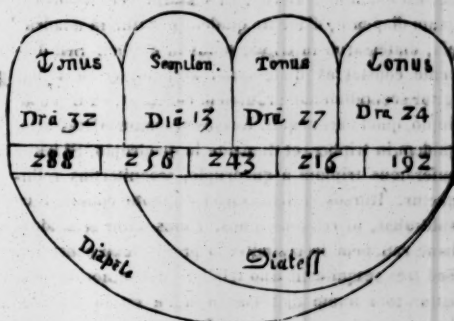 Tonus Semiton. Tonus Tonus
Drā 32 Diā 13 Drā 27 Drā 24
288 256 243 216 192
Diapēte Diateſſ